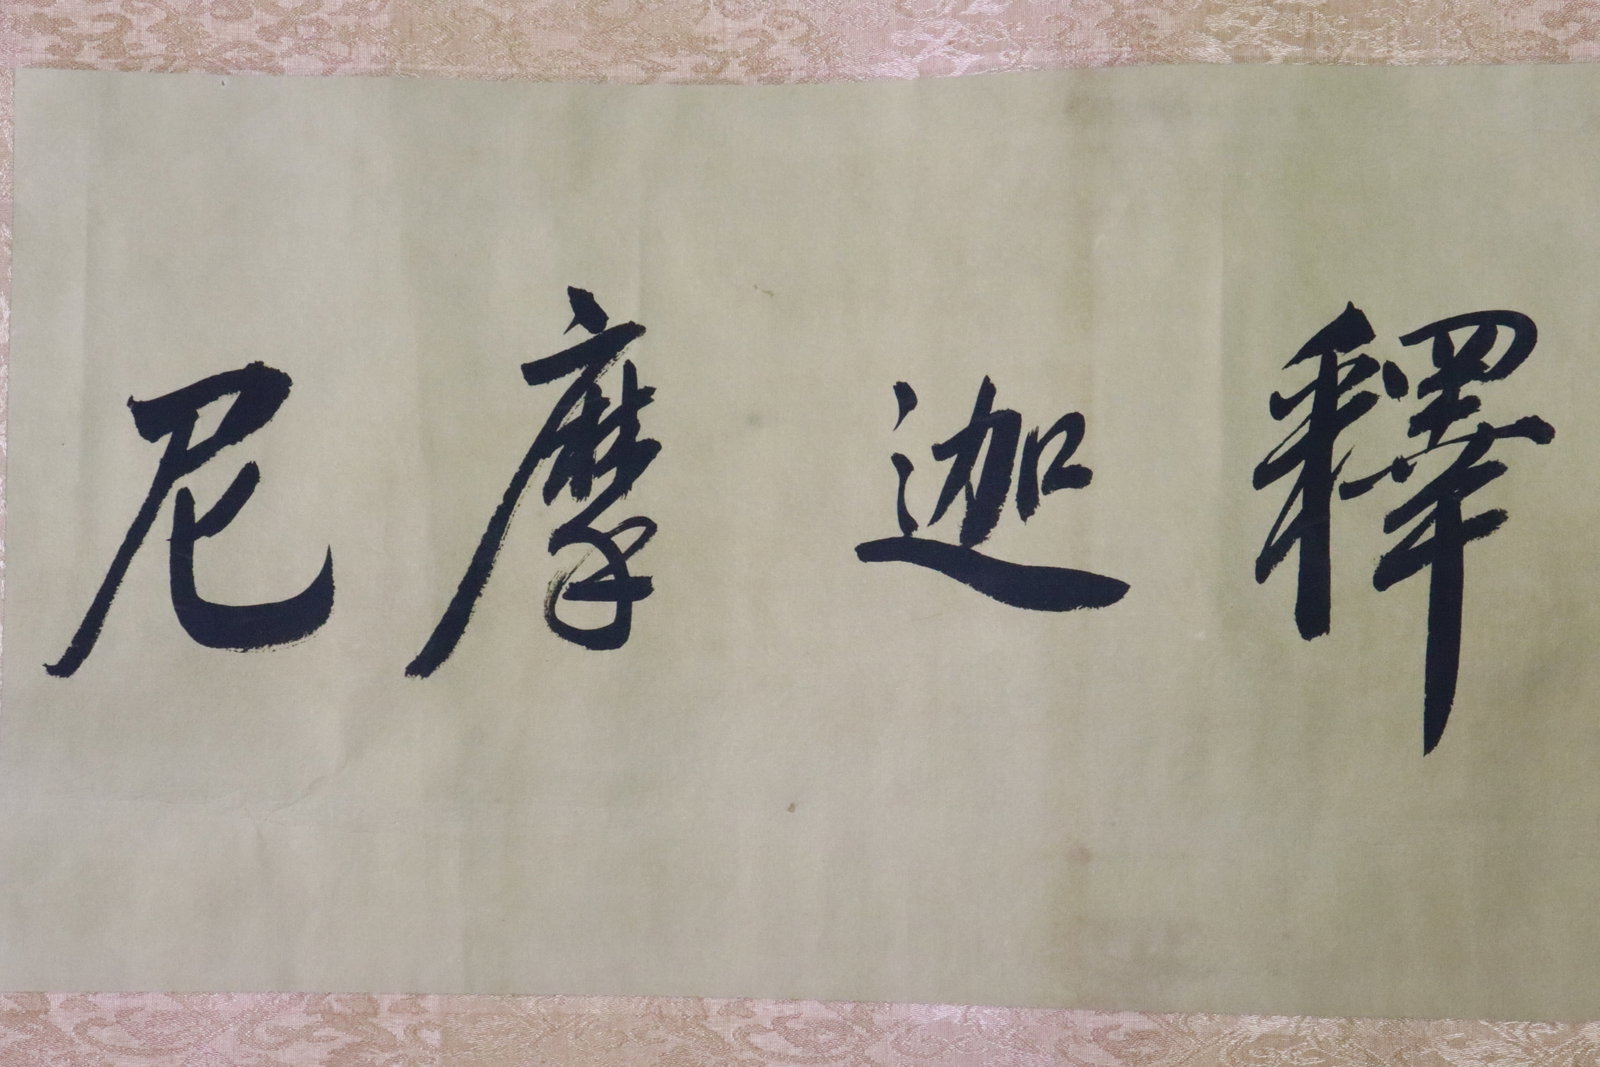 釋迦摩尼